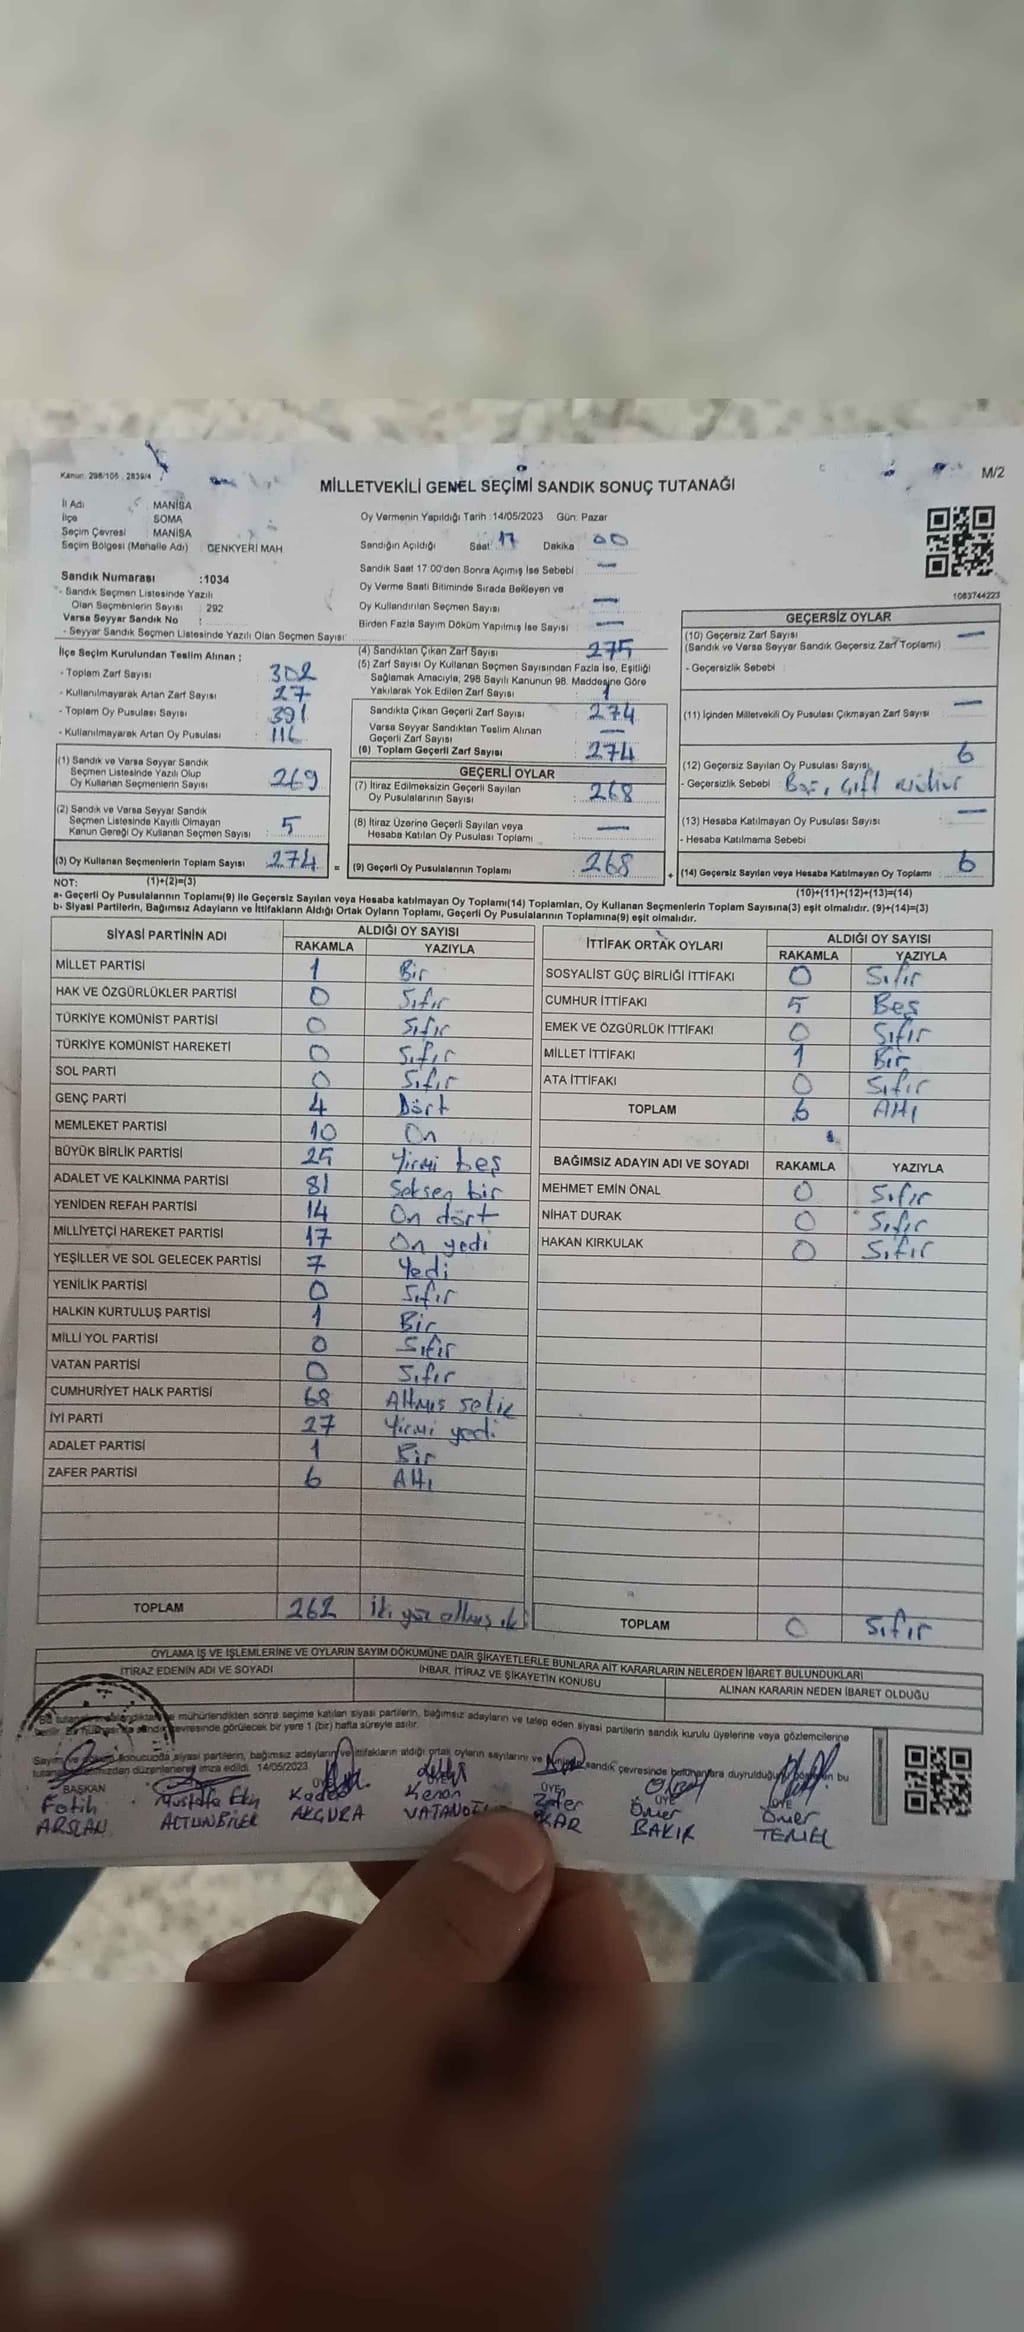 Kanun: 298/105 , 2839/4
M/2
MİLLETVEKİLİ GENEL SEÇİMİ SANDIK SONUÇ TUTANAĞI
İl Adı : MANİSA
İlçe SOMA
Seçim Çevresi : MANİSA
Seçim Bölgesi (Mahalle Adı) : CENKYERİ MAH
Sandık Numarası :1034
- Sandık Seçmen Listesinde Yazılı
Olan Seçmenlerin Sayısı : 292
Varsa Seyyar Sandık No :
- Seyyar Sandık Seçmen Listesinde Yazılı Olan Seçmen Sayısı:
Oy Vermenin Yapıldığı Tarih :14/05/2023 Gün: Pazar
Sandığın Açıldığı Saat 17 Dakika 00
Sandık Saat 17:00'den Sonra Açılmış İse Sebebi : —
Oy Verme Saati Bitiminde Sırada Bekleyen ve
Oy Kullandırılan Seçmen Sayısı : —
Birden Fazla Sayım Döküm Yapılmış İse Sayısı : —
1083744223
İlçe Seçim Kurulundan Teslim Alınan ;
- Toplam Zarf Sayısı : 302
- Kullanılmayarak Artan Zarf Sayısı : 27
- Toplam Oy Pusulası Sayısı : 391
- Kullanılmayarak Artan Oy Pusulası : 116
(1) Sandık ve Varsa Seyyar Sandık
Seçmen Listesinde Yazılı Olup
Oy Kullanan Seçmenlerin Sayısı : 269
(2) Sandık ve Varsa Seyyar Sandık
Seçmen Listesinde Kayıtlı Olmayan
Kanun Gereği Oy Kullanan Seçmen Sayısı : 5
(3) Oy Kullanan Seçmenlerin Toplam Sayısı : 274 =
(4) Sandıktan Çıkan Zarf Sayısı : 275
(5) Zarf Sayısı Oy Kullanan Seçmen Sayısından Fazla İse, Eşitliği
Sağlamak Amacıyla, 298 Sayılı Kanunun 98. Maddesine Göre
Yakılarak Yok Edilen Zarf Sayısı : 1
Sandıkta Çıkan Geçerli Zarf Sayısı : 274
Varsa Seyyar Sandıktan Teslim Alınan
Geçerli Zarf Sayısı : —
(6) Toplam Geçerli Zarf Sayısı : 274
GEÇERLİ OYLAR
(7) İtiraz Edilmeksizin Geçerli Sayılan
Oy Pusulalarının Sayısı : 268
(8) İtiraz Üzerine Geçerli Sayılan veya
Hesaba Katılan Oy Pusulası Toplamı : —
(9) Geçerli Oy Pusulalarının Toplamı : 268 +
GEÇERSİZ OYLAR
(10) Geçersiz Zarf Sayısı : —
(Sandık ve Varsa Seyyar Sandık Geçersiz Zarf Toplamı)
- Geçersizlik Sebebi :
(11) İçinden Milletvekili Oy Pusulası Çıkmayan Zarf Sayısı : —
(12) Geçersiz Sayılan Oy Pusulası Sayısı : 6
- Geçersizlik Sebebi : Boş, Çift mühür
(13) Hesaba Katılmayan Oy Pusulası Sayısı : —
- Hesaba Katılmama Sebebi
(14) Geçersiz Sayılan veya Hesaba Katılmayan Oy Toplamı : 6
NOT: (1)+(2)=(3) (10)+(11)+(12)+(13)=(14)
a- Geçerli Oy Pusulalarının Toplamı(9) ile Geçersiz Sayılan veya Hesaba katılmayan Oy Toplamı(14) Toplamları, Oy Kullanan Seçmenlerin Toplam Sayısına(3) eşit olmalıdır. (9)+(14)=(3)
b- Siyasi Partilerin, Bağımsız Adayların ve İttifakların Aldığı Ortak Oyların Toplamı, Geçerli Oy Pusulalarının Toplamına(9) eşit olmalıdır.
SİYASİ PARTİNİN ADI ALDIĞI OY SAYISI
RAKAMLA YAZIYLA
MİLLET PARTİSİ 1 Bir
HAK VE ÖZGÜRLÜKLER PARTİSİ 0 Sıfır
TÜRKİYE KOMÜNİST PARTİSİ 0 Sıfır
TÜRKİYE KOMÜNİST HAREKETİ 0 Sıfır
SOL PARTİ 0 Sıfır
GENÇ PARTİ 4 Dört
MEMLEKET PARTİSİ 10 On
BÜYÜK BİRLİK PARTİSİ 25 Yirmi beş
ADALET VE KALKINMA PARTİSİ 81 Seksen bir
YENİDEN REFAH PARTİSİ 14 On dört
MİLLİYETÇİ HAREKET PARTİSİ 17 On yedi
YEŞİLLER VE SOL GELECEK PARTİSİ 7 Yedi
YENİLİK PARTİSİ 0 Sıfır
HALKIN KURTULUŞ PARTİSİ 1 Bir
MİLLİ YOL PARTİSİ 0 Sıfır
VATAN PARTİSİ 0 Sıfır
CUMHURİYET HALK PARTİSİ 68 Altmış sekiz
İYİ PARTİ 27 Yirmi yedi
ADALET PARTİSİ 1 Bir
ZAFER PARTİSİ 6 Altı
TOPLAM 262 İki yüz altmış iki
İTTİFAK ORTAK OYLARI ALDIĞI OY SAYISI
RAKAMLA YAZIYLA
SOSYALİST GÜÇ BİRLİĞİ İTTİFAKI 0 Sıfır
CUMHUR İTTİFAKI 5 Beş
EMEK VE ÖZGÜRLÜK İTTİFAKI 0 Sıfır
MİLLET İTTİFAKI 1 Bir
ATA İTTİFAKI 0 Sıfır
TOPLAM 6 Altı
BAĞIMSIZ ADAYIN ADI VE SOYADI RAKAMLA YAZIYLA
MEHMET EMİN ÖNAL 0 Sıfır
NİHAT DURAK 0 Sıfır
HAKAN KIRKULAK 0 Sıfır
TOPLAM 0 Sıfır
OYLAMA İŞ VE İŞLEMLERİNE VE OYLARIN SAYIM DÖKÜMÜNE DAİR ŞİKAYETLERLE BUNLARA AİT KARARLARIN NELERDEN İBARET BULUNDUKLARI
İTİRAZ EDENİN ADI VE SOYADI İHBAR, İTİRAZ VE ŞİKAYETİN KONUSU ALINAN KARARIN NEDEN İBARET OLDUĞU
Bu mühürlendikten sonra seçime katılan siyasi partilerin, bağımsız adayların ve talep eden siyasi partilerin sandık kurulu üyelerine veya gözlemcilerine
çevresinde görülecek bir yere 1 (bir) hafta süreyle asılır.
Sayım ve sonucunda siyasi partilerin, bağımsız adayların ve ittifakların aldığı ortak oyların sayılarını ve sandık çevresinde bulunanlara duyurulduğunu bu
düzenlenerek imza edildi. 14/05/2023
BAŞKAN ÜYE ÜYE ÜYE ÜYE ÜYE
Fatih Mustafa Kenan Zafer Ömer Ömer
ARSLAN AKGURA BAKIR TEMEL